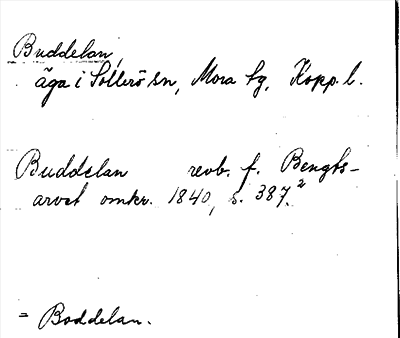 Buddelan,
äga i Sollerö sn, Mora tg, Kopp. l.
Buddelan revb. f. Bengts-
arvet omkr. 1840, s. 387.²
= Boddelan.